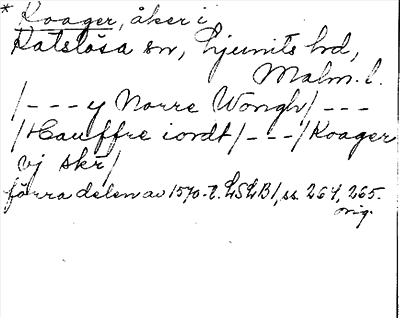 * Koager, åker i
Katslösa sn, Ljunits hd,
Malm. l.
/--- y Norre Wongh/---
/Hauffre iordt/---/Koager
vj skr/
förra delen av 1570-t. LSLB1, ss. 264, 265.
orig.